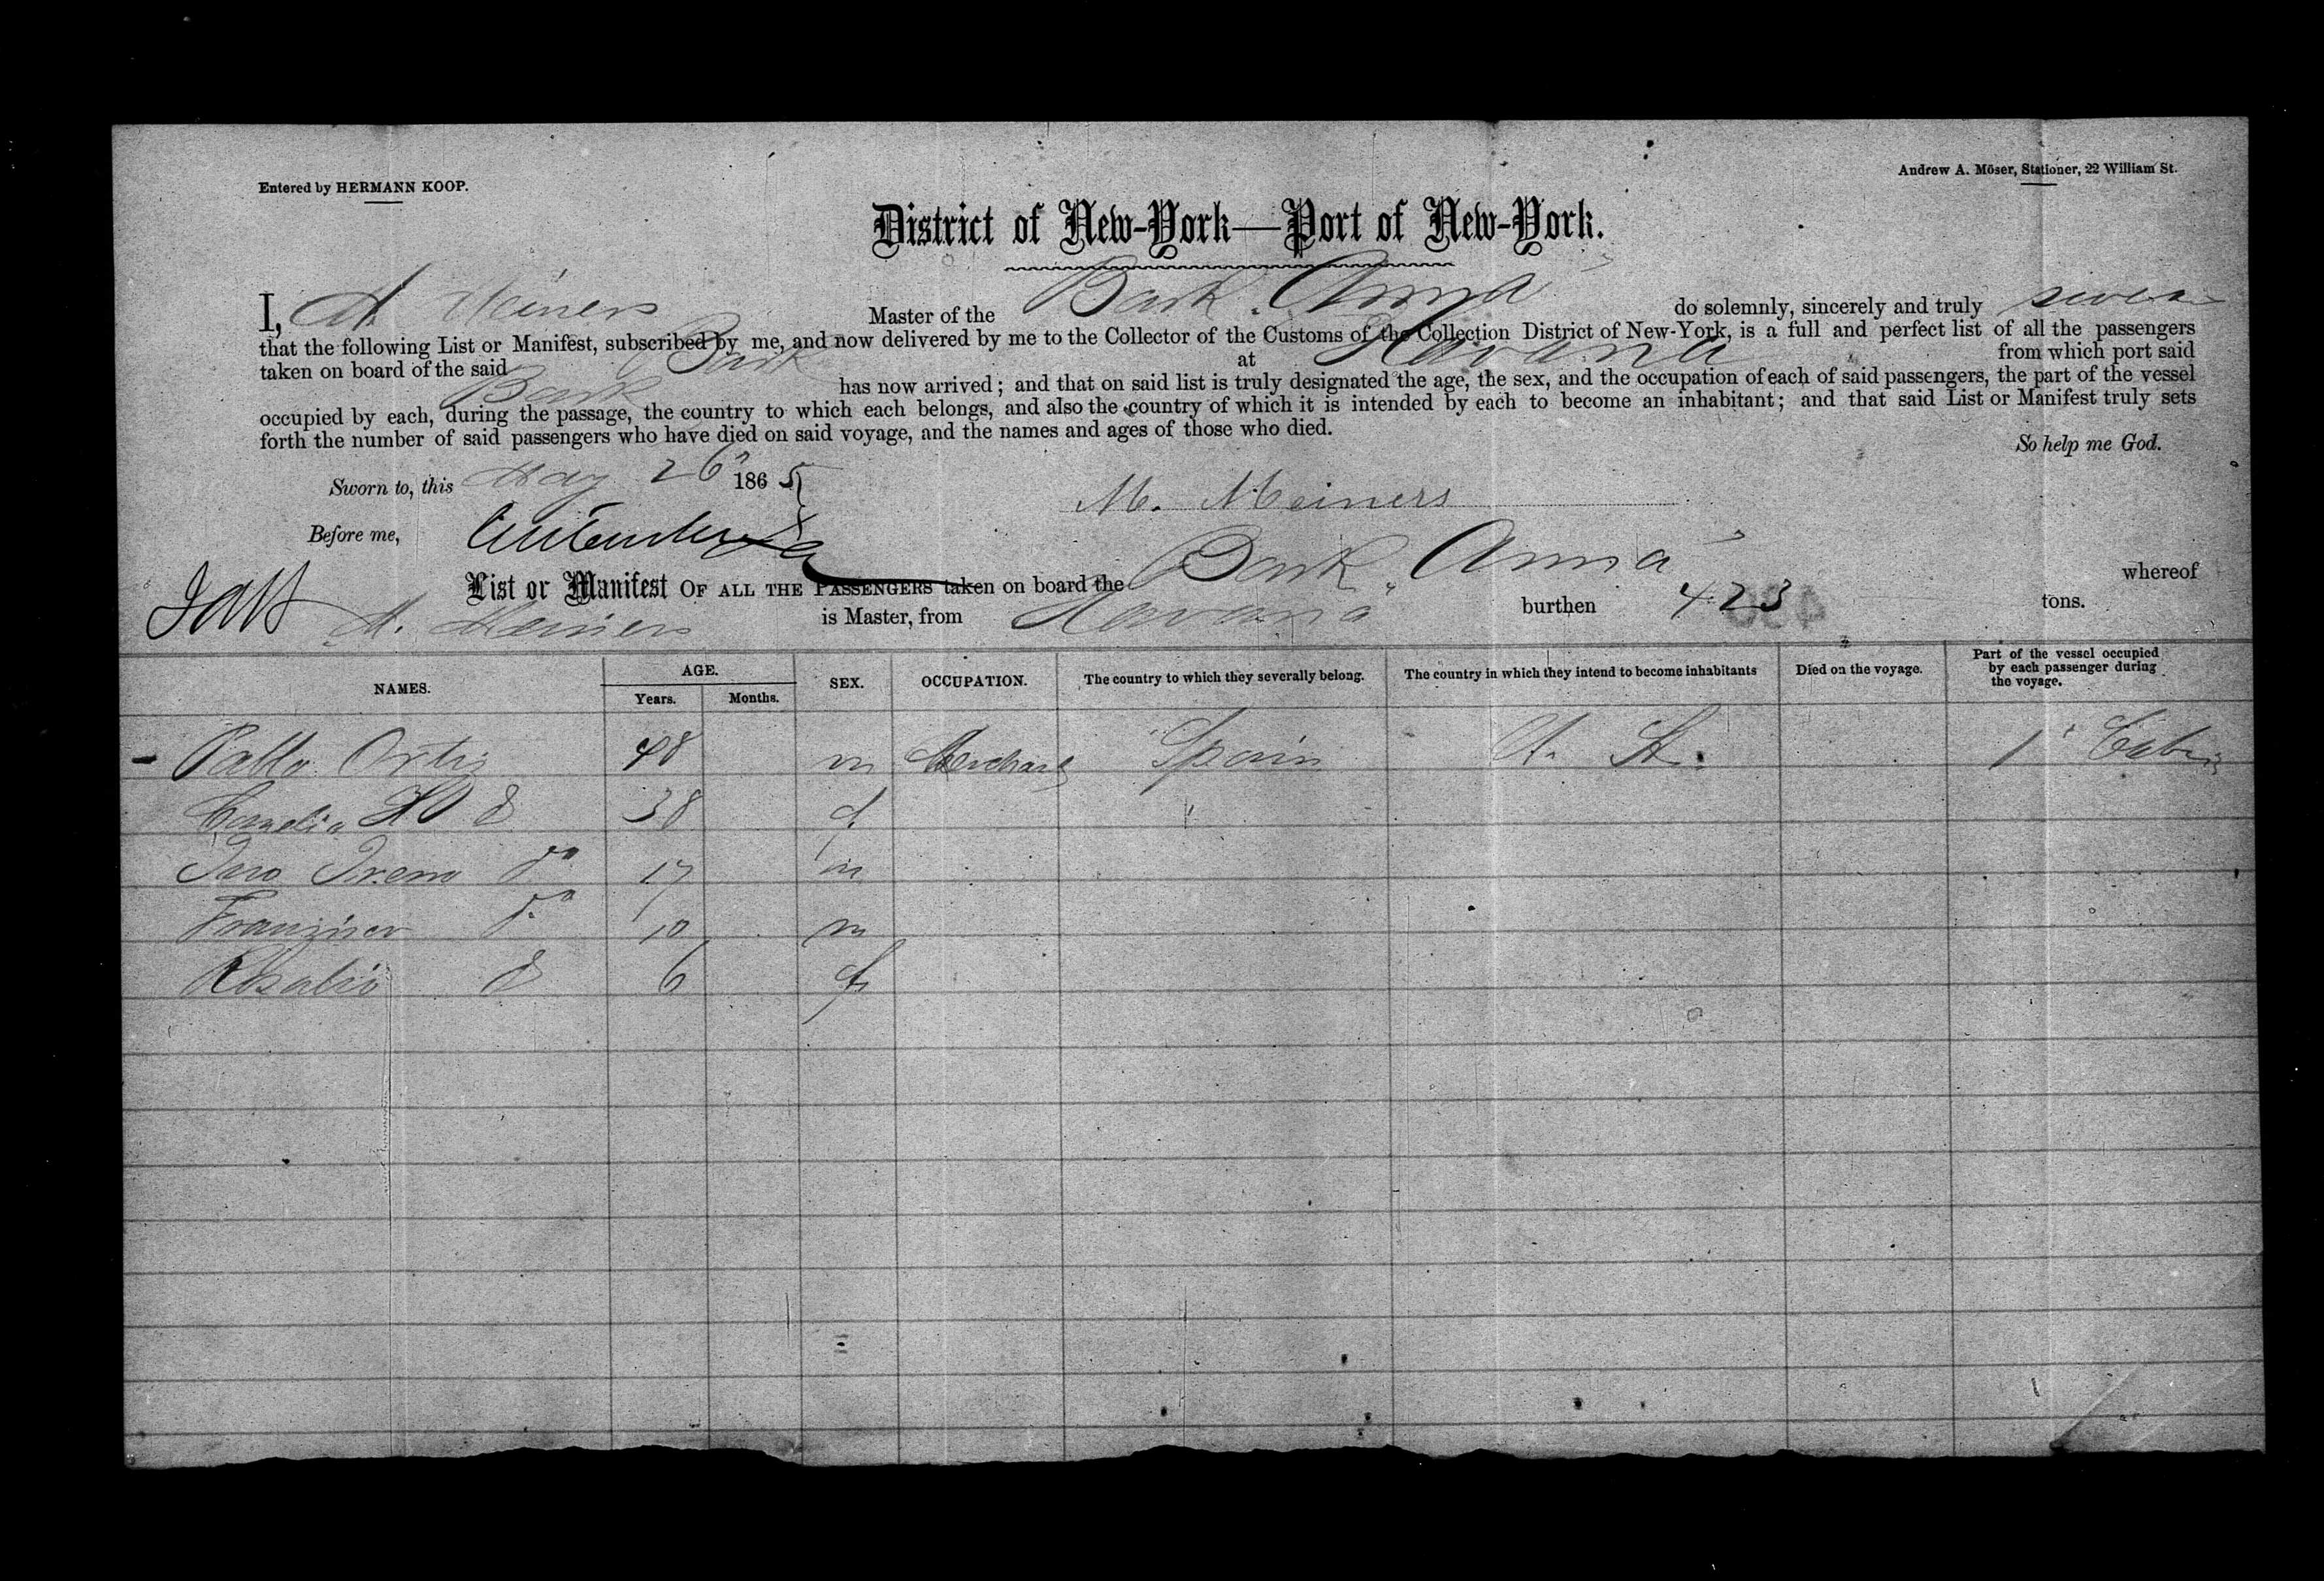 Entered by HERMANN KOOP.
Andrew A. Möser, Stationer, 22 William St.
District of New-York—Port of New-York.
I, M. Meiners Master of the Bark "Anna" do solemnly, sincerely and truly swear
that the following List or Manifest, subscribed by me, and now delivered by me to the Collector of the Customs of the Collection District of New-York, is a full and perfect list of all the passengers
taken on board of the said Bark at Havana from which port said
Bark has now arrived; and that on said list is truly designated the age, the sex, and the occupation of each of said passengers, the part of the vessel
occupied by each, during the passage, the country to which each belongs, and also the country of which it is intended by each to become an inhabitant; and that said List or Manifest truly sets
forth the number of said passengers who have died on said voyage, and the names and ages of those who died.
So help me God.
Sworn to, this May 26 1865
M. Meiners
Before me,
List or Manifest OF ALL THE PASSENGERS taken on board the Bark "Anna" whereof
M. Meiners is Master, from Havana burthen 423 tons.
NAMES. AGE. Years. Months. SEX. OCCUPATION. The country to which they severally belong. The country in which they intend to become inhabitants Died on the voyage. Part of the vessel occupied by each passenger during the voyage.
Pablo Ortiz 48 m Merchant Spain U. St. 1 Cabin
38 f "
do 17 m
do 10 m
Rosalia do 6 f